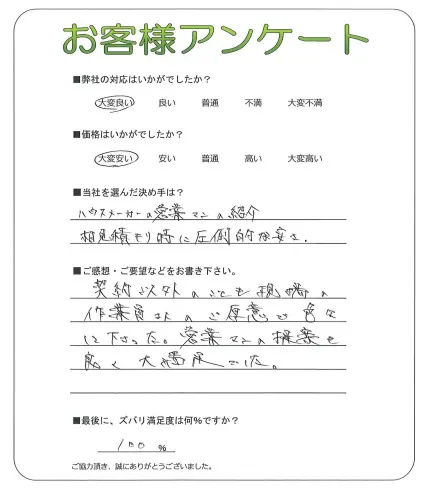 お客様アンケート
■弊社の対応はいかがでしたか？
大変良い 良い 普通 不満 大変不満
■価格はいかがでしたか？
大変安い 安い 普通 高い 大変高い
■当社を選んだ決め手は？
ハウスメーカーの営業マンの紹介
相見積もり時に圧倒的な安さ．
■ご感想・ご要望などをお書き下さい。
契約以外のことも現場の
作業員さんのご厚意で色々
して下さった。営業マンの提案も
良く大満足でした。
■最後に、ズバリ満足度は何％ですか？
100 ％
ご協力頂き、誠にありがとうございました。